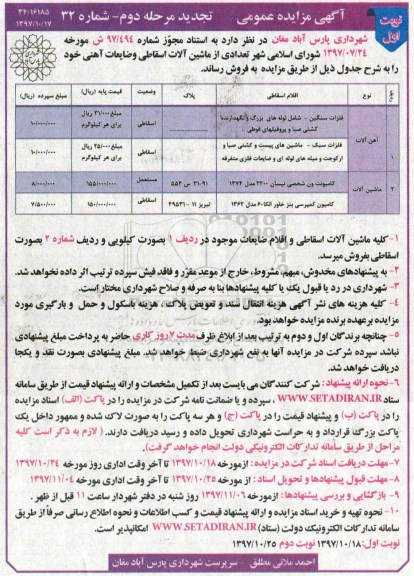 ۳۴/۱۶۱۸۵
۱۳۹۷/۱۰/۱۷
آگهی مزایده عمومی تجدید مرحله دوم- شماره ۳۲
نوبت اول
شهرداری پارس آباد مغان در نظر دارد به استناد مجوّز شماره ۹۷/۴۹۴ ش مورخه
۱۳۹۷/۰۷/۲۴ شورای اسلامی شهر تعدادی از ماشین آلات اسقاطی وضایعات آهنی خود
را به شرح جدول ذیل از طریق مزایده به فروش رساند.
نوع اقلام اسقاطی پلاک وضعیت قیمت پایه (ریال) مبلغ سپرده (ریال)
۱ آهن آلات فلزات سنگین - شامل لوله های بزرگ و نگهدارنده کشتی صبا و پروفیلهای قوطی اسقاطی مبلغ ۳۱/۰۰۰ ریال برای هر کیلوگرم ۱۰/۰۰۰/۰۰۰
فلزات سبک - ماشین های پیست و کشتی صبا و ارگوجت و میله های لوله ای و ضایعات فلزی متفرقه اسقاطی مبلغ ۲۵/۰۰۰ ریال برای هر کیلوگرم ۱۰/۰۰۰/۰۰۰
۲ ماشین آلات کامیونت ون شخصی نیسان ۲۴۰۰ مدل ۱۳۷۴ ۳۱-۹۱ س ۵۵۴ مستعمل ۱۵۵/۰۰۰/۰۰۰ ۸/۰۰۰/۰۰۰
کامیون کمپرسی بنز خاور الکا۶۰ مدل ۱۳۶۲ تبریز ۱۱ - ۴۹۵۳۱ اسقاطی ۱۵۰/۰۰۰/۰۰۰ ۷/۵۰۰/۰۰۰
۱- کلیه ماشین آلات اسقاطی و اقلام ضایعات موجود در ردیف ۱ بصورت کیلویی و ردیف شماره ۲ بصورت
اسقاطی بفروش میرسد.
۲- به پیشنهادهای مخدوش، مبهم، مشروط، خارج از موعد مقرّر و فاقد فیش سپرده ترتیب اثر داده نخواهد شد.
۳- شهرداری در رد یا قبول یک یا کلیه پیشنهادها بنا به صرفه و صلاح شهرداری مختار است.
۴- کلیه هزینه های نشر آگهی هزینه انتقال سند و تعویض پلاک، هزینه باسکول و حمل و بارگیری مورد
مزایده برعهده برنده مزایده خواهد بود.
۵- چنانچه برندگان اول و دوم به ترتیب بعد از ابلاغ ظرف مدت ۷ روز کاری حاضر به پرداخت مبلغ پیشنهادی
نباشد سپرده شرکت در مزایده آنها به نفع شهرداری ضبط خواهد شد. مبلغ پیشنهادی بصورت نقد و یکجا
دریافت خواهد شد.
۶- نحوه ارائه پیشنهاد: شرکت کنندگان می بایست بعد از تکمیل مشخصات و ارائه پیشنهاد قیمت از طریق سامانه
ستاد WWW.SETADIRAN.IR ، سپرده و یا ضمانت نامه شرکت در مزایده را در پاکت (الف) اسناد مزایده
را در پاکت (ب) و پیشنهاد قیمت را در پاکت (ج) و هر سه پاکت را به صورت لاک شده و ممهور داخل یک
پاکت بزرگ قرارداد و به حراست شهرداری تحویل داده و رسید دریافت دارند. ( لازم به ذکر است کلیه
مراحل از طریق سامانه تدارکات الکترونیکی دولت انجام خواهد گرفت).
۷- مهلت دریافت اسناد شرکت در مزایده : ازمورخه ۱۳۹۷/۱۰/۱۸ تا آخر وقت اداری روز مورخه ۱۳۹۷/۱۰/۲۴
۸- مهلت قبول پیشنهادها و تحویل اسناد : از مورخه ۱۳۹۷/۱۰/۲۵ تا آخر وقت اداری مورخه ۱۳۹۷/۱۱/۰۴
۹- بازگشایی و بررسی پیشنهادها : ازمورخه ۱۳۹۷/۱۱/۰۶ روز شنبه در دفتر شهردار ساعت ۱۱ قبل از ظهر .
۱۰- نحوه تهیه و خرید اسناد مزایده و ارائه پیشنهاد قیمت و کسب اطلاعات و نحوه اطلاع رسانی صرفاً از طریق
سامانه تدارکات الکترونیک دولت (ستاد) WWW.SETADIRAN.IR امکانپذیر است.
نوبت اول: ۱۳۹۷/۱۰/۱۸ نوبت دوم ۱۳۹۷/۱۰/۲۵
احمد ملائی مطلق - سرپرست شهرداری پارس آباد مغان